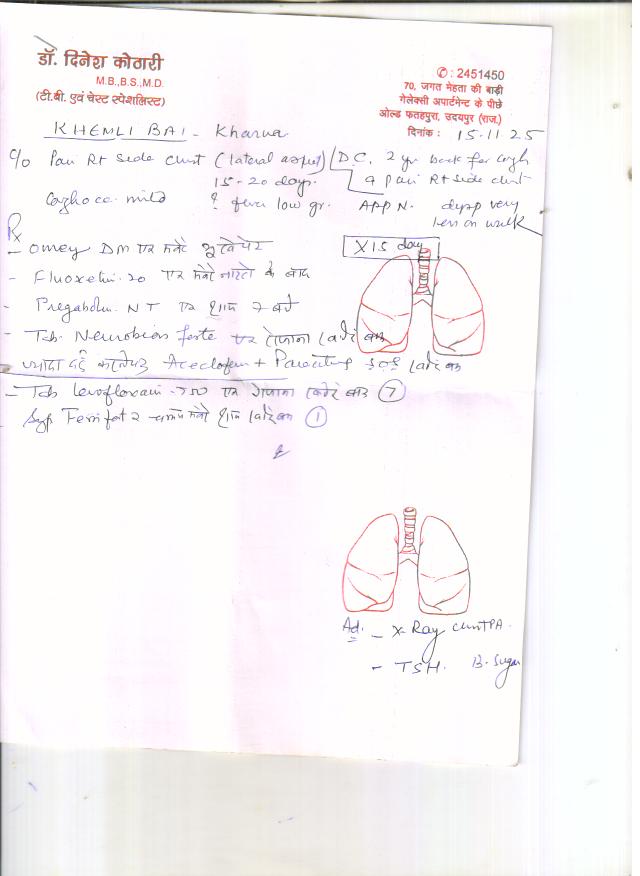 डॉ. दिनेश कोठारी
M.B.,B.S.,M.D.
(टी.बी. एवं चेस्ट स्पेशलिस्ट)
✆ : 2451450
70, जगत मेहता की बाड़ी
गेलेक्सी अपार्टमेन्ट के पीछे
ओल्ड फतहपुरा, उदयपुर (राज.)
दिनांक : 15.11.25
KHEMLI BAI - Kharwa
C/o Pain Rt side chest (lateral aspect) D.C. 2 yr back for cough
15-20 days. Pain Rt side chest
mild ? fever low gr. APP N. very
less on walk
Rx
- Omez DM एक सवेरे भूखे पेट X 15 day
- Fluoxetin. 20 एक सवेरे नाश्ते के बाद
- Pregabalin. NT एक शाम 7 बजे
- Tab. Neurobion forte एक रोजाना
ज्यादा दर्द Aceclofen +
- Tab Levofloxacin - 750 एक रोजाना बाद 7
Syp 2 चम्मच सवेरे शाम 1
Ad. - X-Ray Chest PA.
- TSH. B. Sugar